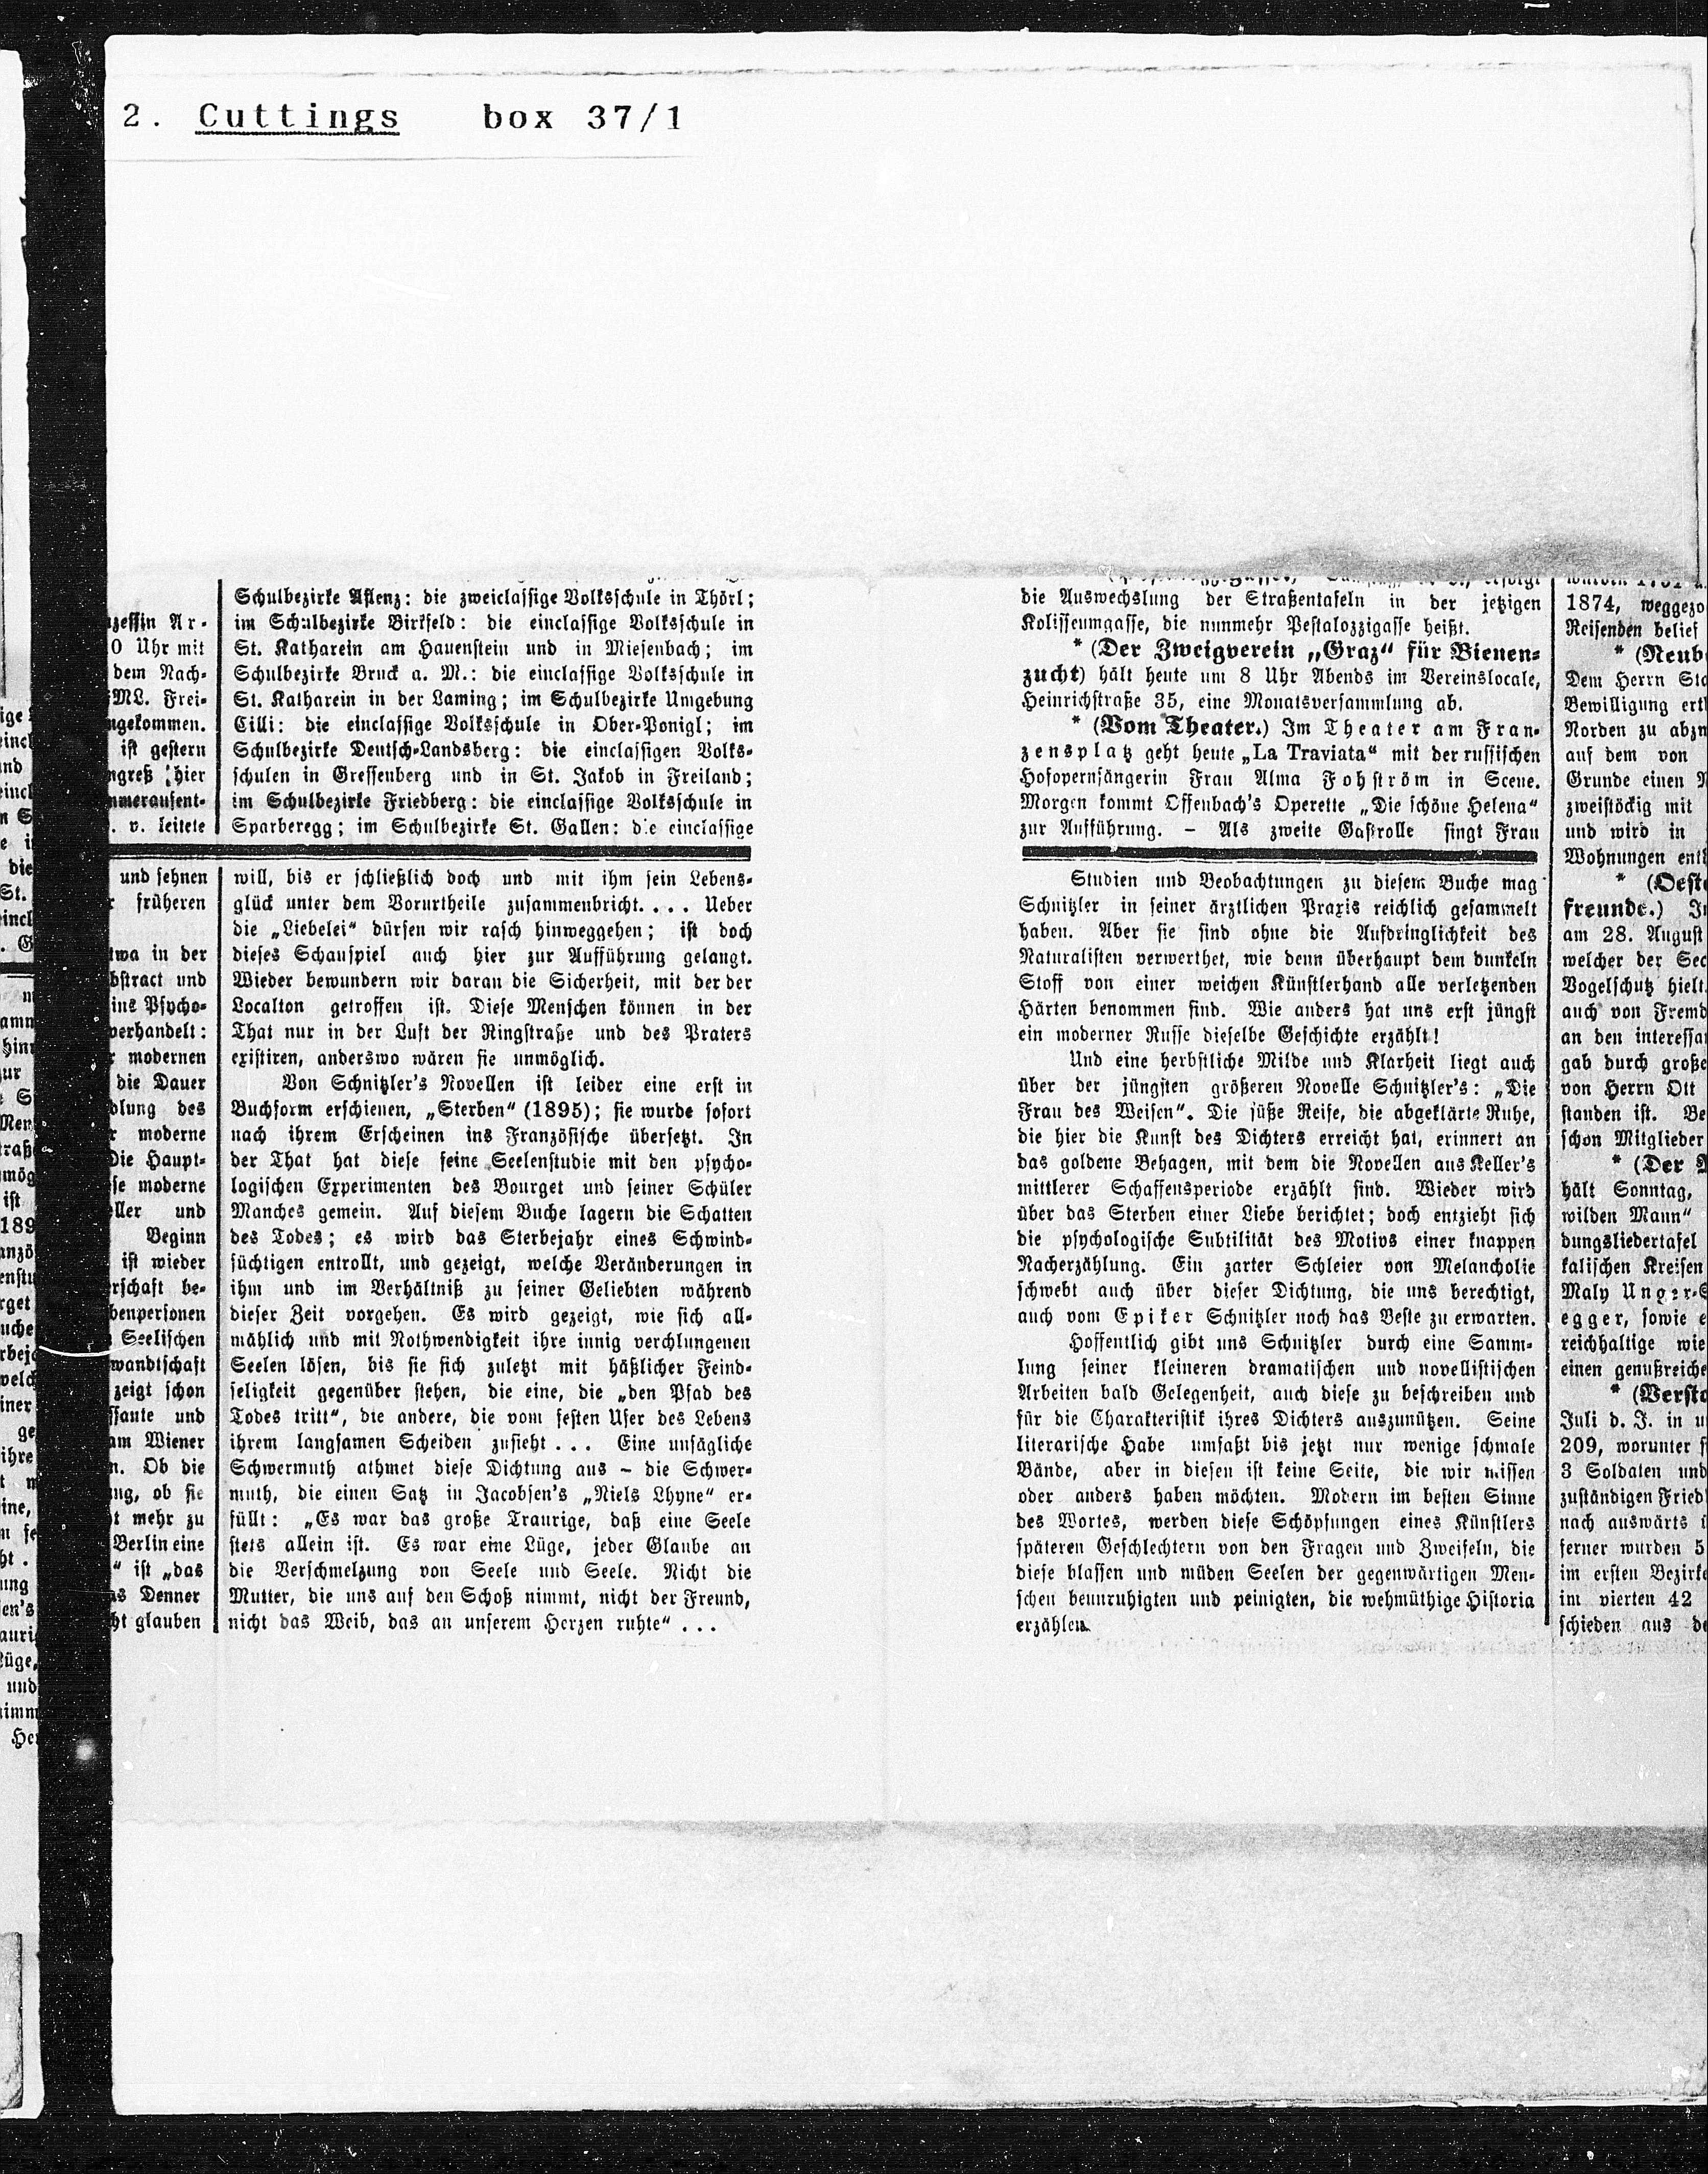 2. Cuttings box 37/1
ige
eincl
und
eincl
die
St.
eincl
ist
189
und
nimm
Her
zessin Ar-
0 Uhr mit
dem Nach-
FML. Frei-
ngekommen.
ist gestern
ngreß hier
mmeraufent-
. v. leitete
und sehnen
r früheren
twa in der
bstract und
ins Psycho-
verhandelt:
r modernen
die Dauer
dlung des
r moderne
Die Haupt-
se moderne
eller und
Beginn
ist wieder
erschaft be-
benpersonen
Seelischen
wandtschaft
zeigt schon
ssante und
am Wiener
n. Ob die
ng, ob sie
t mehr zu
Berlin eine
“ ist „das
as Denner
ht glauben
Schulbezirke Aflenz: die zweiclassige Volksschule in Thörl;
im Schulbezirke Birkfeld: die einclassige Volksschule in
St. Katharein am Hauenstein und in Miesenbach; im
Schulbezirke Bruck a. M.: die einclassige Volksschule in
St. Katharein in der Laming; im Schulbezirke Umgebung
Cilli: die einclassige Volksschule in Ober-Ponigl; im
Schulbezirke Deutsch-Landsberg: die einclassigen Volks-
schulen in Gressenberg und in St. Jakob in Freiland;
im Schulbezirke Friedberg: die einclassige Volksschule in
Sparberegg; im Schulbezirke St. Gallen: die einclassige
will, bis er schließlich doch und mit ihm sein Lebens-
glück unter dem Vorurtheile zusammenbricht.... Ueber
die „Liebelei“ dürfen wir rasch hinweggehen; ist doch
dieses Schauspiel auch hier zur Aufführung gelangt.
Wieder bewundern wir daran die Sicherheit, mit der der
Localton getroffen ist. Diese Menschen können in der
That nur in der Luft der Ringstraße und des Praters
existiren, anderswo wären sie unmöglich.
Von Schnitzler's Novellen ist leider eine erst in
Buchform erschienen, „Sterben“ (1895); sie wurde sofort
nach ihrem Erscheinen ins Französische übersetzt. In
der That hat diese feine Seelenstudie mit den psycho-
logischen Experimenten des Bourget und seiner Schüler
Manches gemein. Auf diesem Buche lagern die Schatten
des Todes; es wird das Sterbejahr eines Schwind-
süchtigen entrollt, und gezeigt, welche Veränderungen in
ihm und im Verhältniß zu seiner Geliebten während
dieser Zeit vorgehen. Es wird gezeigt, wie sich all-
mählich und mit Nothwendigkeit ihre innig verchlungenen
Seelen lösen, bis sie sich zuletzt mit häßlicher Feind-
seligkeit gegenüber stehen, die eine, die „den Pfad des
Todes tritt“, die andere, die vom festen Ufer des Lebens
ihrem langsamen Scheiden zusieht... Eine unsägliche
Schwermuth athmet diese Dichtung aus – die Schwer-
muth, die einen Satz in Jacobsen's „Niels Lhyne“ er-
füllt: „Es war das große Traurige, daß eine Seele
stets allein ist. Es war eine Lüge, jeder Glaube an
die Verschmelzung von Seele und Seele. Nicht die
Mutter, die uns auf den Schoß nimmt, nicht der Freund,
nicht das Weib, das an unserem Herzen ruhte“ ...
erfolgt
die Auswechslung der Straßentafeln in der jetzigen
Kolisseumgasse, die nunmehr Pestalozzigasse heißt.
* (Der Zweigverein „Graz“ für Bienen-
zucht) hält heute um 8 Uhr Abends im Vereinslocale,
Heinrichstraße 35, eine Monatsversammlung ab.
* (Vom Theater.) Im Theater am Fran-
zensplatz geht heute „La Traviata“ mit der russischen
Hofopernsängerin Frau Alma Fohström in Scene.
Morgen kommt Offenbach's Operette „Die schöne Helena“
zur Aufführung. – Als zweite Gastrolle singt Frau
Studien und Beobachtungen zu diesem Buche mag
Schnitzler in seiner ärztlichen Praxis reichlich gesammelt
haben. Aber sie sind ohne die Aufdringlichkeit des
Naturalisten verwerthet, wie denn überhaupt dem dunkeln
Stoff von einer weichen Künstlerhand alle verletzenden
Härten benommen sind. Wie anders hat uns erst jüngst
ein moderner Russe dieselbe Geschichte erzählt!
Und eine herbstliche Milde und Klarheit liegt auch
über der jüngsten größeren Novelle Schnitzler's: „Die
Frau des Weisen“. Die süße Reife, die abgeklärte Ruhe,
die hier die Kunst des Dichters erreicht hat, erinnert an
das goldene Behagen, mit dem die Novellen aus Keller's
mittlerer Schaffensperiode erzählt sind. Wieder wird
über das Sterben einer Liebe berichtet; doch entzieht sich
die psychologische Subtilität des Motivs einer knappen
Nacherzählung. Ein zarter Schleier von Melancholie
schwebt auch über dieser Dichtung, die uns berechtigt,
auch vom Epiker Schnitzler noch das Beste zu erwarten.
Hoffentlich gibt uns Schnitzler durch eine Samm-
lung seiner kleineren dramatischen und novellistischen
Arbeiten bald Gelegenheit, auch diese zu beschreiben und
für die Charakteristik ihres Dichters auszunützen. Seine
literarische Habe umfaßt bis jetzt nur wenige schmale
Bände, aber in diesen ist keine Seite, die wir missen
oder anders haben möchten. Modern im besten Sinne
des Wortes, werden diese Schöpfungen eines Künstlers
späteren Geschlechtern von den Fragen und Zweifeln, die
diese blassen und müden Seelen der gegenwärtigen Men-
schen beunruhigten und peinigten, die wehmüthige Historia
erzählen.
1874, weggezo
Reisenden belief
* (Neub
Dem Herrn Sta
Bewilligung ert
Norden zu abzw
auf dem von
Grunde einen N
zweistöckig mit
und wird in
Wohnungen ent
* (Oest
freunde.) I
am 28. August
welcher der Sec
Vogelschutz hielt.
auch von Fremd
an den interessa
gab durch große
von Herrn Ott
standen ist. Be
schon Mitglieder
* (Der
hält Sonntag,
wilden Mann“
dungsliedertafel
kalischen Kreisen
Maly Unger-
egger, sowie e
reichhaltige wie
einen genußreiche
* (Versto
Juli d. J. in u
209, worunter
3 Soldaten und
zuständigen Fried
nach auswärts
ferner wurden 5
im ersten Bezirk
im vierten 42
schieden aus de